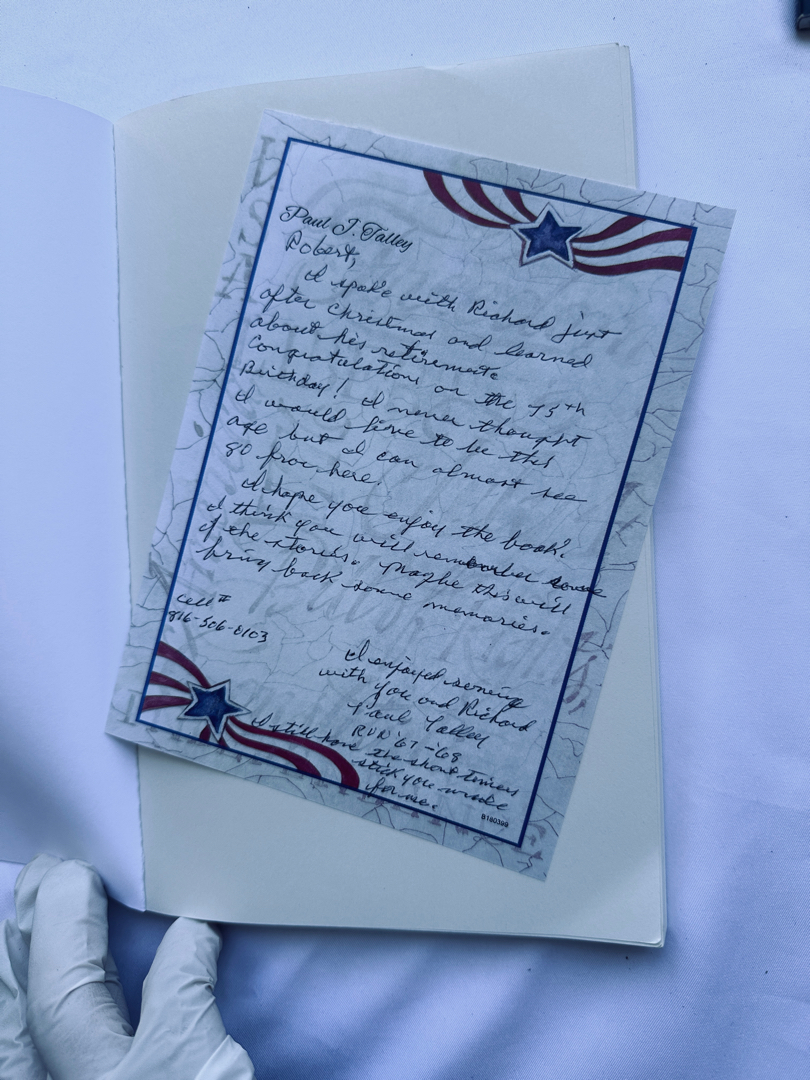 Paul J. Talley
Robert,
I spoke with Richard just
after Christmas and learned
about his retirement.
Congratulations on the 75th
Birthday! I never thought
I would live to be this
age but I can almost see
80 from here.
I hope you enjoy the book.
I think you will remember some
of the stories. Maybe this will
bring back some memories.
cell #
816-506-0103
I enjoyed serving
with you and Richard
Paul Talley
RVN '67-'68
I still have the short timers
stick you made
for me.
B180399